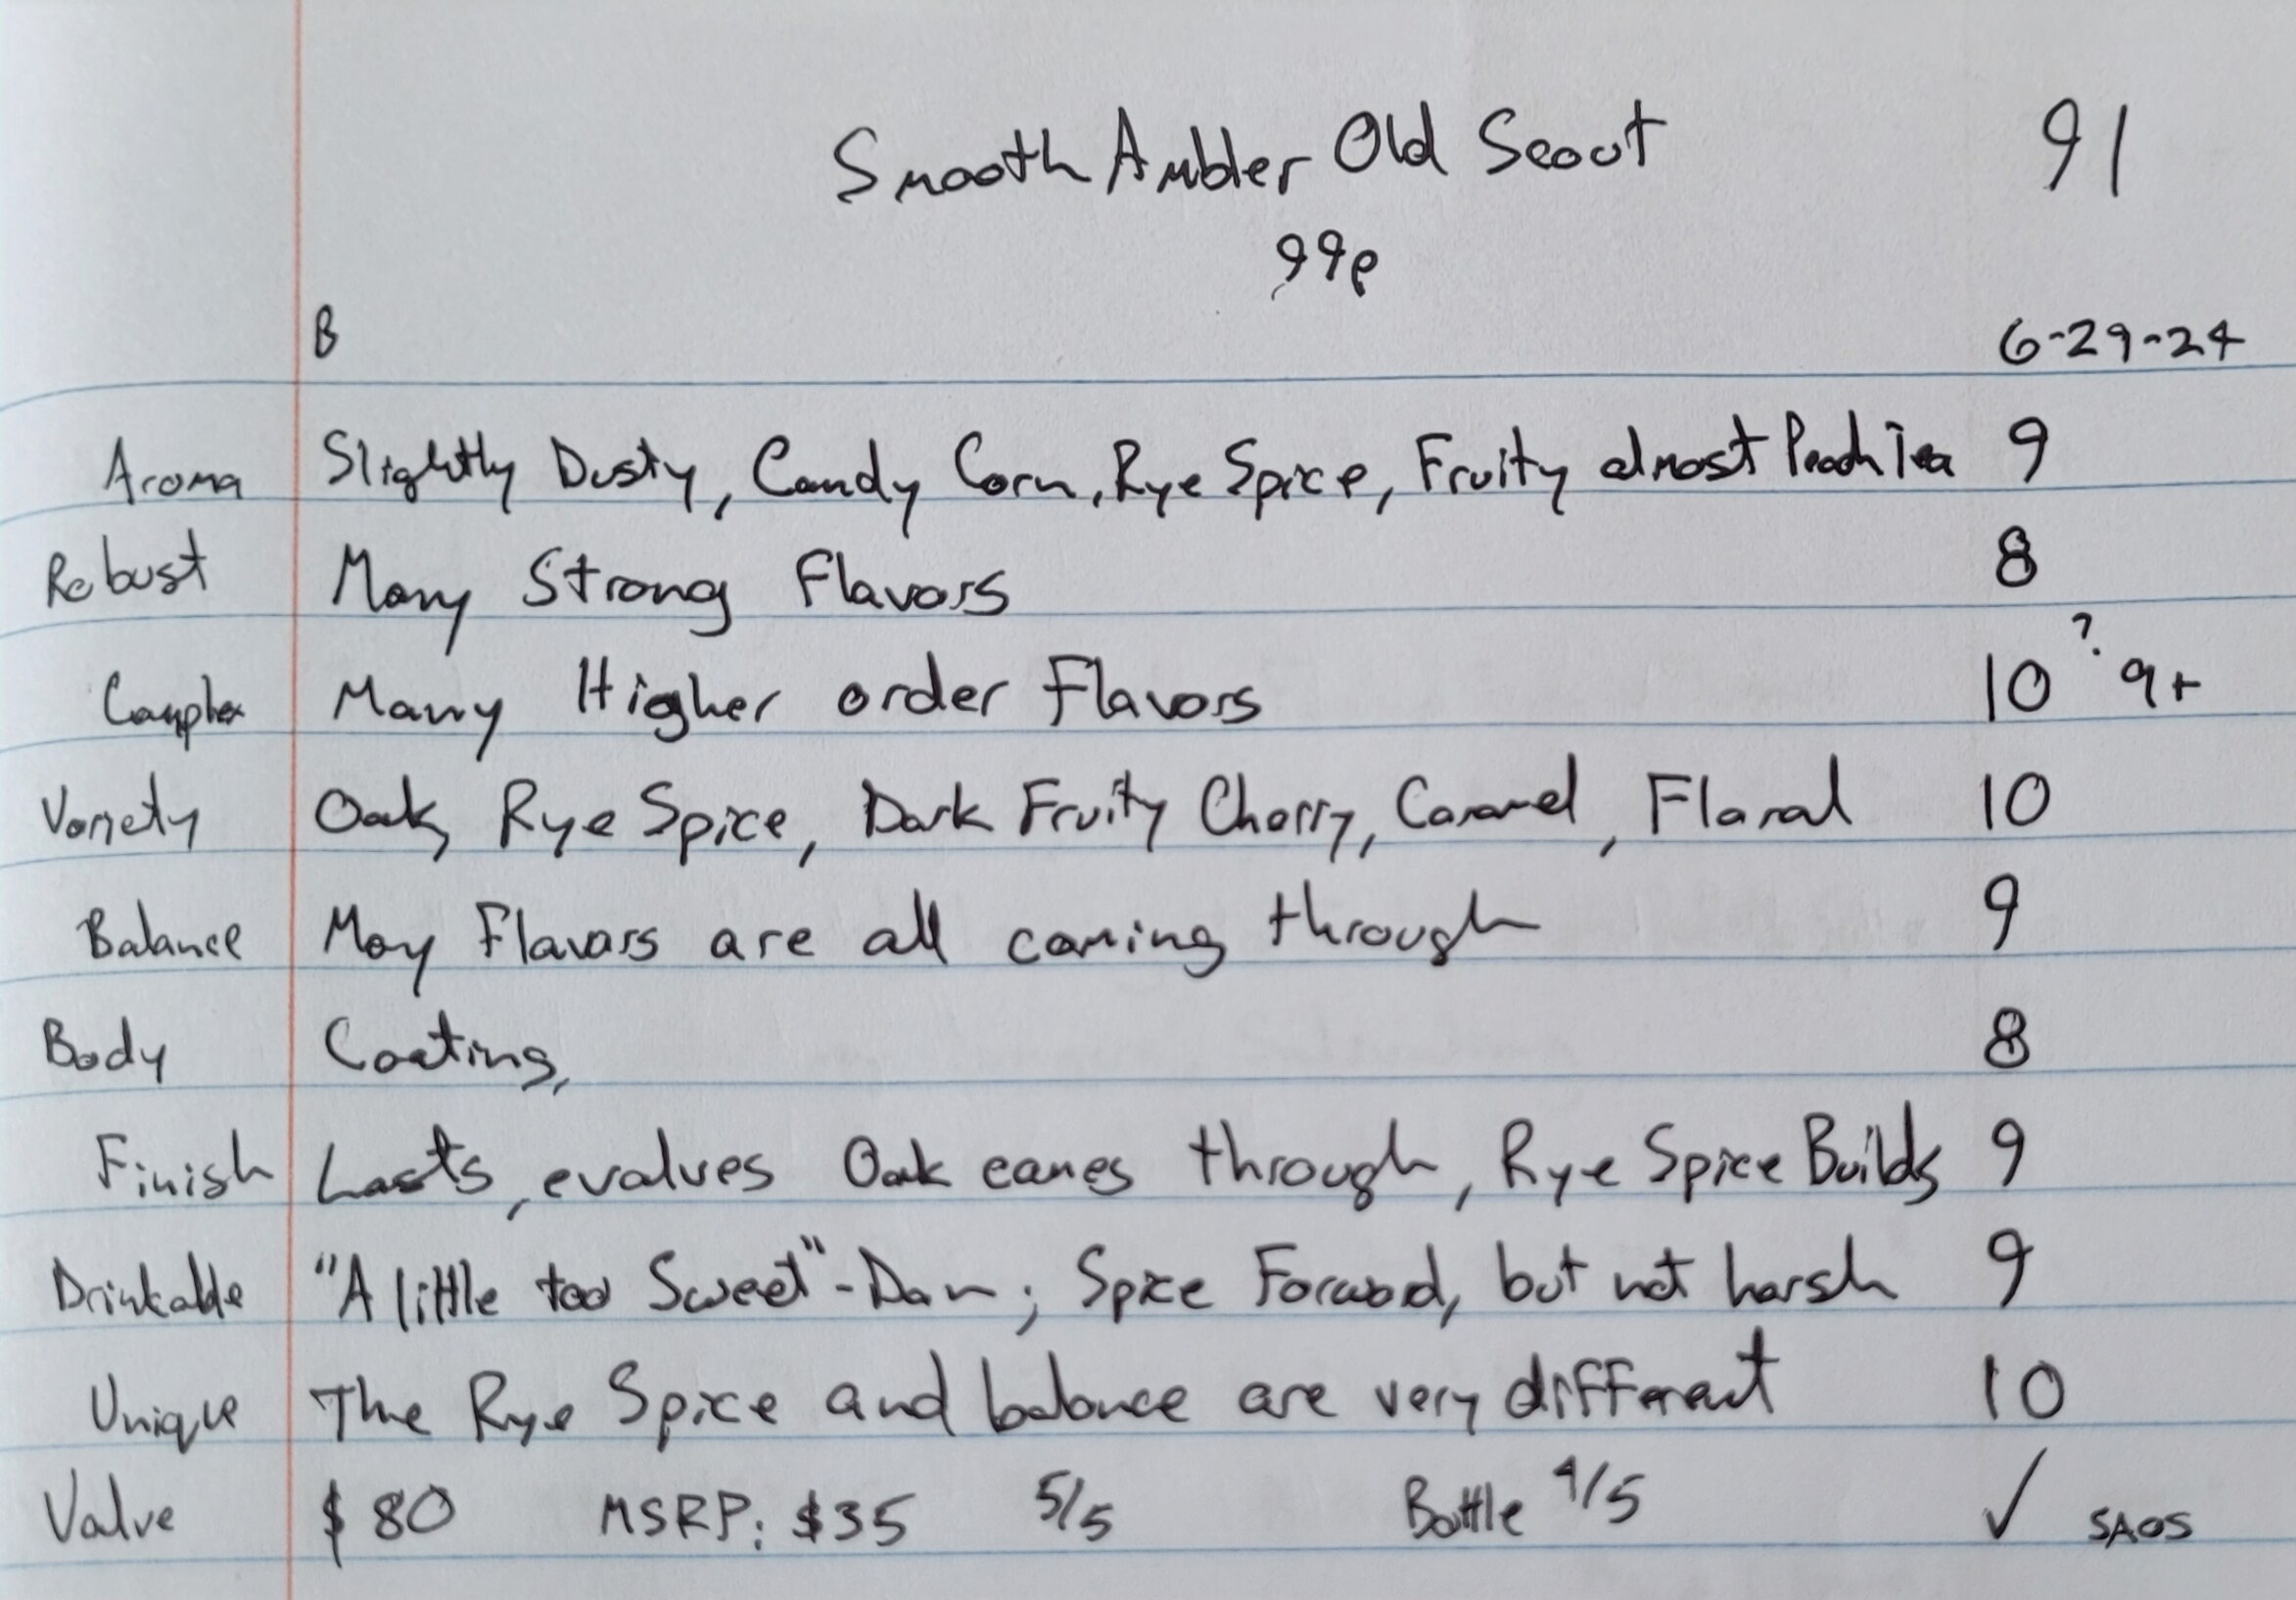 Smooth Ambler Old Scout 91
99p
B 6-29-24
Aroma Slightly Dusty, Candy Corn, Rye Spice, Fruity almost Peach Tea 9
Robust Many Strong Flavors 8
Complex Many Higher order Flavors 10 ? 9+
Variety Oak, Rye Spice, Dark Fruity Cherry, Caramel, Floral 10
Balance May Flavors are all coming through 9
Body Coating, 8
Finish Lasts, evolves Oak comes through, Rye Spice Builds 9
Drinkable "A little too Sweet" - Dan; Spice Forward, but not harsh 9
Unique The Rye Spice and balance are very different 10
Value $80 MSRP: $35 5/5 Bottle 4/5 ✓ SAOS